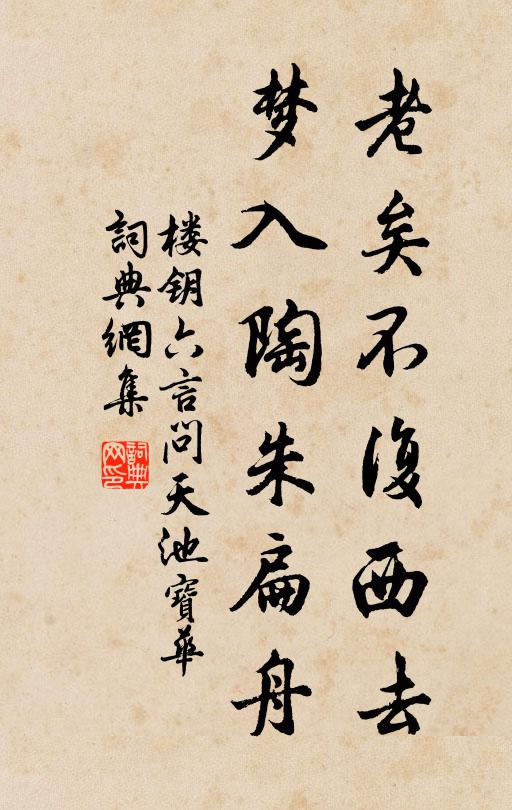 老矣不復西去
梦入陶朱扁舟
楼钥六言问天池寶華
詞典網集
詞典網印